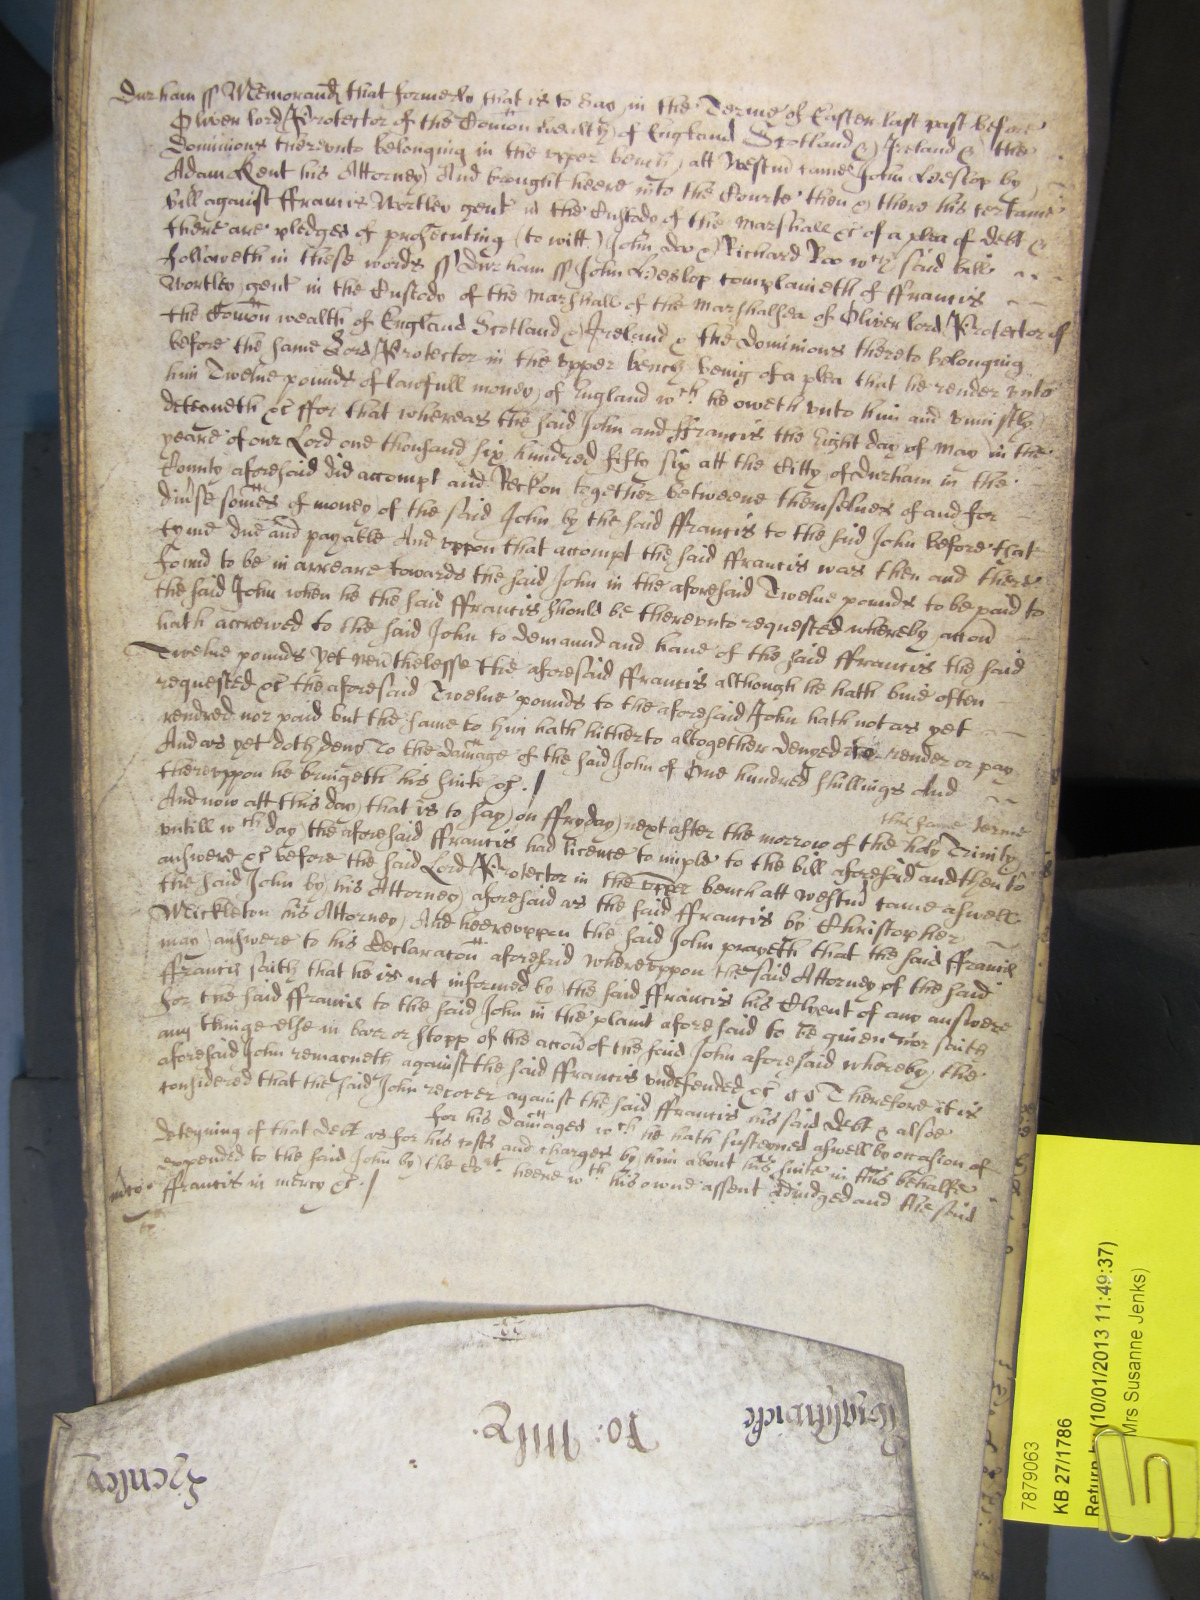 Durham ss Memorand that formerly that is to say in the Terme of Easter last past before
Oliver lord Protector of the Comon wealth of England Scotland & Ireland & the
Dominions therevnto belonging in the vpper bench att Westm came John Heslop by
Adam Kent his Attorney And brought heere into the Courte then & there his certaine
bill against ffrancis Wortley gent in the Custody of the Marshall &c of a plea of debt &
there are pledges of prosecuting (to witt) John doo & Richard Roo wch said bill
followeth in these words ss Durham ss John Heslop complaineth of ffrancis
Wortley gent in the Custody of the Marshall of the Marshalsea of Oliver lord Protector of
the Comon wealth of England Scotland & Ireland & the Dominions thereto belonging
before the same Lord Protector in the vpper bench being of a plea that he render vnto
him Twelue pounds of lawfull money of England wch he oweth vnto him and vniustly
deteyneth &c ffor that whereas the said John and ffrancis the Eight day of May in the
yeare of our Lord one thousand six hundred fifty six att the Citty of Durham in the
County aforesaid did accompt and Reckon together betweene themselues of and for
diuse somes of money of the said John by the said ffrancis to the said John before that
tyme due and payable And vppon that accompt the said ffrancis was then and there
found to be in arreare towards the said John in the aforesaid Twelue pounds to be paid to
the said John when he the said ffrancis should be therevnto requested whereby accon
hath accrewed to the said John to demaund and haue of the said ffrancis the said
Twelue pounds Yet neuthelesse the aforesaid ffrancis although he hath bine often
requested &c the aforesaid Twelue pounds to the aforesaid John hath not as yet
rendred nor paid but the same to him hath hitherto altogether denyed to render or pay
And as yet doth deny To the damage of the said John of One hundred shillings And
therevppon he bringeth his suite &c.
this same Terme
And now att this day that is to say on ffryday next after the morrow of the holy Trinity
vntill wch day the aforesaid ffrancis had licence to imple to the bill aforesaid and then to
answere &c before the said Lord Protector in the vpper bench att Westm came aswell
the said John by his Attorney aforesaid as the said ffrancis by Christopher
Mickleton his Attorney And heerevppon the said John prayeth that the said ffrancis
may answere to his declaracon aforesaid wherevppon the said Attorney of the said
ffrancis saith that he is not informed by the said ffrancis his Clyent of any answere
for the said ffrancis to the said John in the plaint aforesaid to be giuen nor saith
any thinge else in barr or stopp of the accon of the said John aforesaid whereby the
aforesaid John remayneth against the said ffrancis vndefended &c Therefore it is
considered that the said John recover against the said ffrancis his said Debt & alsoe
for his damages wch he hath susteyned aswell by occasion of
deteyning of that Debt as for his costs and charges by him about his suite in this behalfe
expended to the said John by the Cort heere wth his owne assent Adiudged and the said
ffrancis in mercy &c.
Henley
Ro: Mcly
7879063
KB 27/1786
(10/01/2013 11:49:37)
Mrs Susanne Jenks)